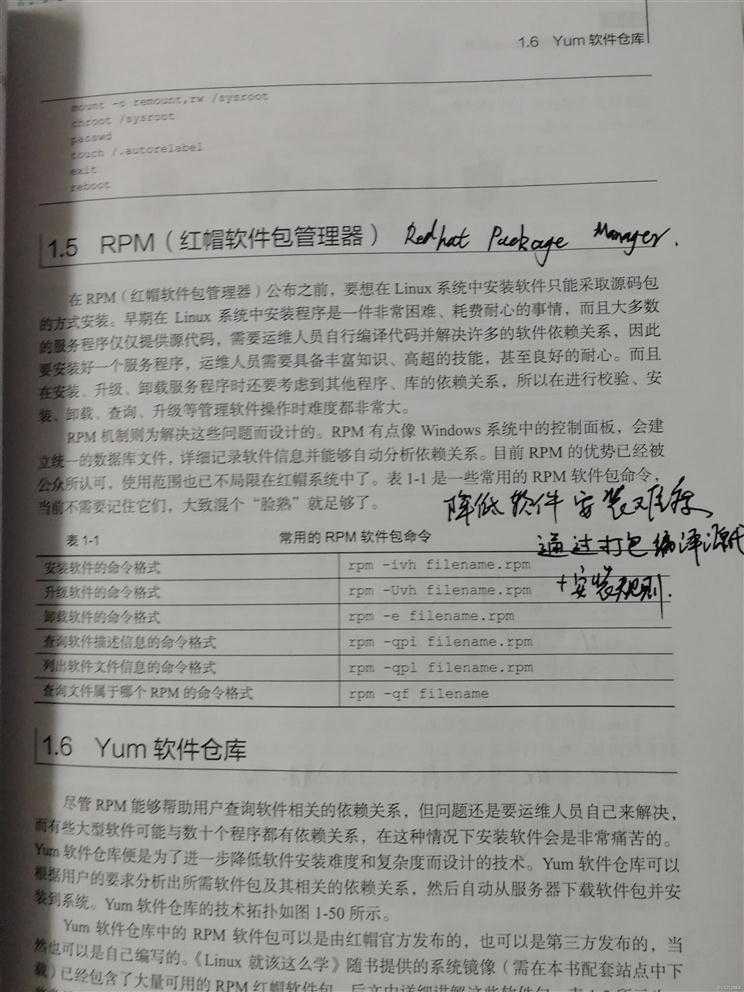 1.6 Yum 软件仓库
mount -o remount,rw /sysroot
chroot /sysroot
passwd
touch /.autorelabel
exit
reboot
1.5 RPM（红帽软件包管理器） Redhat Package Manager.
在 RPM（红帽软件包管理器）公布之前，要想在 Linux 系统中安装软件只能采取源码包
的方式安装。早期在 Linux 系统中安装程序是一件非常困难、耗费耐心的事情，而且大多数
的服务程序仅仅提供源代码，需要运维人员自行编译代码并解决许多的软件依赖关系，因此
要安装好一个服务程序，运维人员需要具备丰富知识、高超的技能，甚至良好的耐心。而且
在安装、升级、卸载服务程序时还要考虑到其他程序、库的依赖关系，所以在进行校验、安
装、卸载、查询、升级等管理软件操作时难度都非常大。
RPM 机制则为解决这些问题而设计的。RPM 有点像 Windows 系统中的控制面板，会建
立统一的数据库文件，详细记录软件信息并能够自动分析依赖关系。目前 RPM 的优势已经被
公众所认可，使用范围也已不局限在红帽系统中了。表 1-1 是一些常用的 RPM 软件包命令，
当前不需要记住它们，大致混个“脸熟”就足够了。
降低软件安装难度
通过打包编译源代
+安装规则.
表 1-1 常用的 RPM 软件包命令
安装软件的命令格式 rpm -ivh filename.rpm
升级软件的命令格式 rpm -Uvh filename.rpm
卸载软件的命令格式 rpm -e filename.rpm
查询软件描述信息的命令格式 rpm -qpi filename.rpm
列出软件文件信息的命令格式 rpm -qpl filename.rpm
查询文件属于哪个 RPM 的命令格式 rpm -qf filename
1.6 Yum 软件仓库
尽管 RPM 能够帮助用户查询软件相关的依赖关系，但问题还是要运维人员自己来解决，
而有些大型软件可能与数十个程序都有依赖关系，在这种情况下安装软件会是非常痛苦的。
Yum 软件仓库便是为了进一步降低软件安装难度和复杂度而设计的技术。Yum 软件仓库可以
根据用户的要求分析出所需软件包及其相关的依赖关系，然后自动从服务器下载软件包并安
装到系统。Yum 软件仓库的技术拓扑如图 1-50 所示。
Yum 软件仓库中的 RPM 软件包可以是由红帽官方发布的，也可以是第三方发布的，当
然也可以是自己编写的。《Linux 就该这么学》随书提供的系统镜像（需在本书配套站点中下
载）已经包含了大量可用的 RPM 红帽软件包，后文中详细讲解这些软件包。